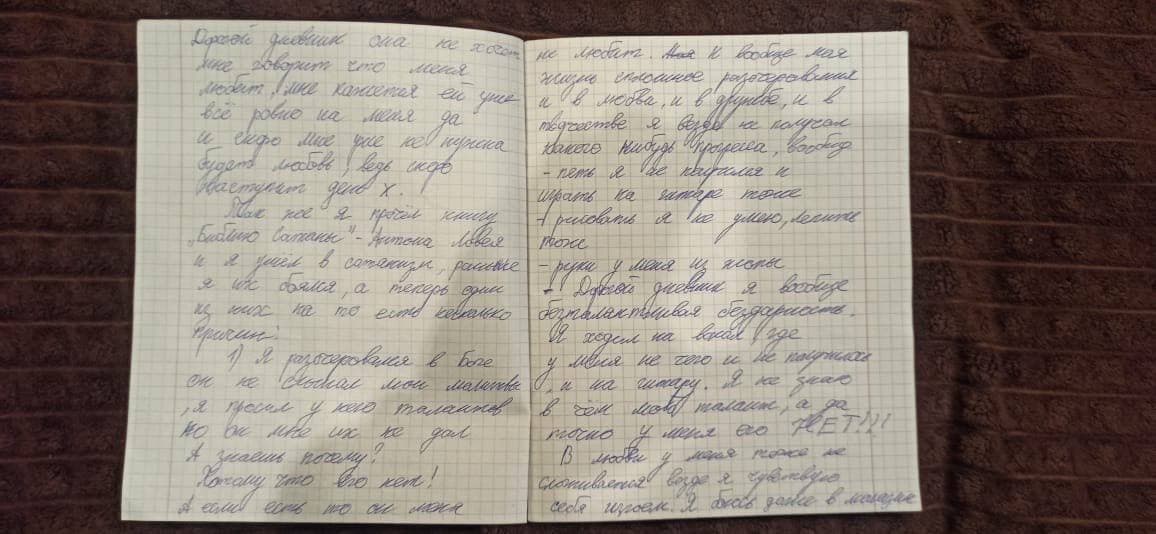 Дорогой дневник она не хочет
мне говорит что меня
любит, мне кажется ей уже
всё ровно на меня да
и скоро мне уже не нужна
будет любовь, ведь скоро
наступит день X.
Так же я прочёл книгу
„Библию Сатаны" - Антона Лавея
и я ушёл в сатанизм, раньше
я их боялся, а теперь один
из них на то есть несколько
причин:
1) Я разочеровался в Боге
он не слышал мои молитвы
, я просил у него талантов
но он мне их не дал
А знаешь почему?
Потому что его нет!
А если есть то он меня
не любит. К вообще моя
жизнь сплошное разочерования
и в любва, и в дружбе, и в
творчестве я везде не получал
какого нибудь прогресса, вообще
- петь я не научился и
играть на гитаре тоже
+ рисовать я не умею, лепить
тоже
- руки у меня из жопы
- Дорогой дневник я вообще
безталантливая бездарность.
Я ходил на вокал где
у меня не чего и не получилось
, и на гитару. Я не знаю
в чём мой талант, а да
точно у меня его НЕТ!!!
В любви у меня тоже не
склеивается везде я чувствую
себя изгоем. Я боюсь даже в магазин